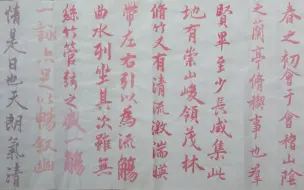 春之初會于會稽山陰
之蘭亭脩禊事也羣
賢畢至少長咸集此
地有崇山峻領茂林
脩竹又有清流激湍暎
帶左右引以為流觴
曲水列坐其次雖無
絲竹管弦之盛一觴
一詠亦足以暢叙幽
情是日也天朗氣清